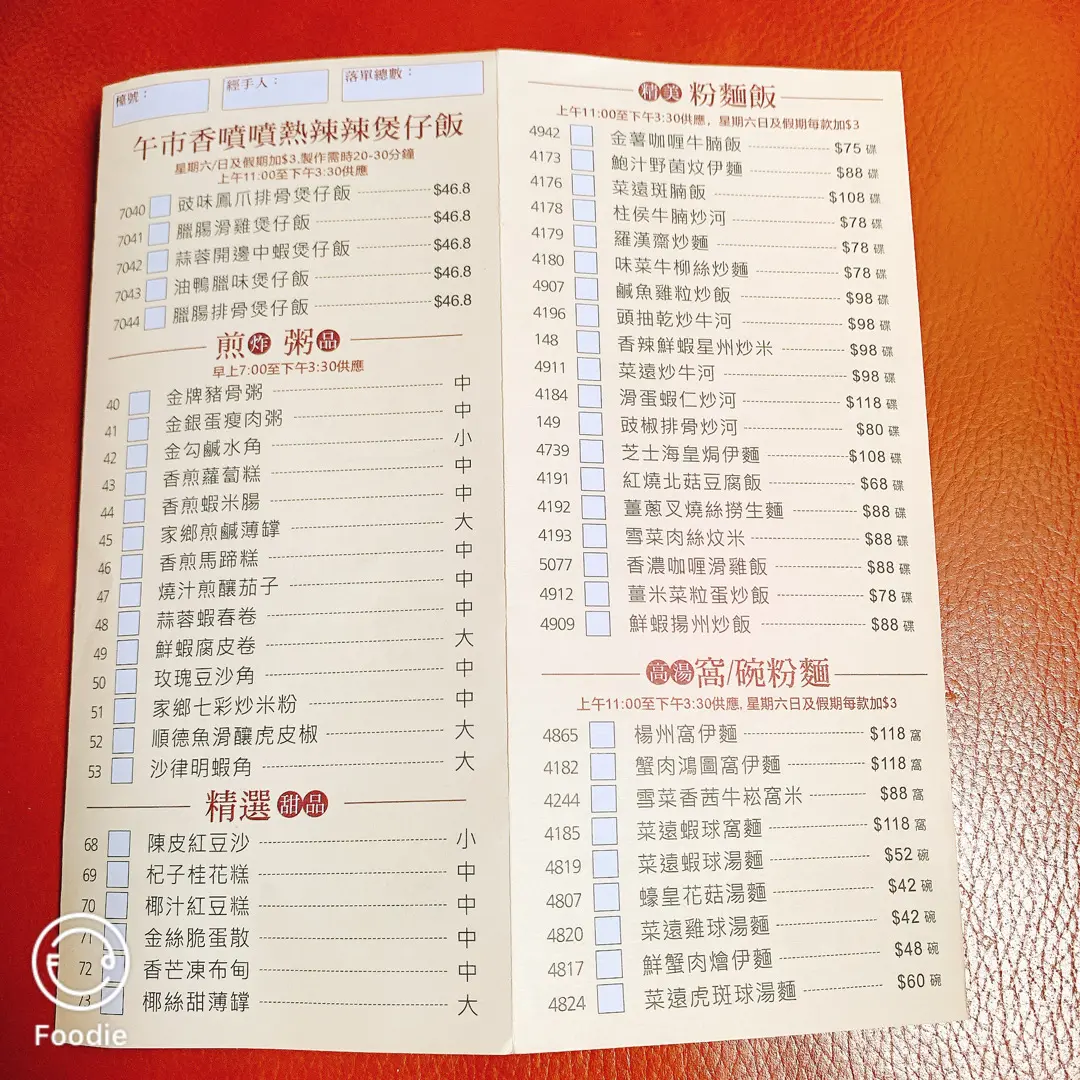 檯號：
經手人：
落單總數：
午市香噴噴熱辣辣煲仔飯
星期六/日及假期加$3,製作需時20-30分鐘
上午11:00至下午3:30供應
7040 豉味鳳爪排骨煲仔飯 $46.8
7041 臘腸滑雞煲仔飯 $46.8
7042 蒜蓉開邊中蝦煲仔飯 $46.8
7043 油鴨臘味煲仔飯 $46.8
7044 臘腸排骨煲仔飯 $46.8
煎炸粥品
早上7:00至下午3:30供應
40 金牌豬骨粥 中
41 金銀蛋瘦肉粥 中
42 金勾鹹水角 小
43 香煎蘿蔔糕 中
44 香煎蝦米腸 中
45 家鄉煎鹹薄罉 大
46 香煎馬蹄糕 中
47 燒汁煎釀茄子 中
48 蒜蓉蝦春卷 中
49 鮮蝦腐皮卷 大
50 玫瑰豆沙角 中
51 家鄉七彩炒米粉 中
52 順德魚滑釀虎皮椒 大
53 沙律明蝦角 大
精選甜品
68 陳皮紅豆沙 小
69 杞子桂花糕 中
70 椰汁紅豆糕 中
71 金絲脆蛋散 中
72 香芒凍布甸 中
73 椰絲甜薄罉 大
精美粉麵飯
上午11:00至下午3:30供應，星期六日及假期每款加$3
4942 金薯咖喱牛腩飯 $75 碟
4173 鮑汁野菌炆伊麵 $88 碟
4176 菜遠斑腩飯 $108 碟
4178 柱侯牛腩炒河 $78 碟
4179 羅漢齋炒麵 $78 碟
4180 味菜牛柳絲炒麵 $78 碟
4907 鹹魚雞粒炒飯 $98 碟
4196 頭抽乾炒牛河 $98 碟
148 香辣鮮蝦星州炒米 $98 碟
4911 菜遠炒牛河 $98 碟
4184 滑蛋蝦仁炒河 $118 碟
149 豉椒排骨炒河 $80 碟
4739 芝士海皇焗伊麵 $108 碟
4191 紅燒北菇豆腐飯 $68 碟
4192 薑蔥叉燒絲撈生麵 $88 碟
4193 雪菜肉絲炆米 $88 碟
5077 香濃咖喱滑雞飯 $88 碟
4912 薑米菜粒蛋炒飯 $78 碟
4909 鮮蝦揚州炒飯 $88 碟
高湯窩/碗粉麵
上午11:00至下午3:30供應, 星期六日及假期每款加$3
4865 楊州窩伊麵 $118 窩
4182 蟹肉鴻圖窩伊麵 $118 窩
4244 雪菜香茜牛崧窩米 $88 窩
4185 菜遠蝦球窩麵 $118 窩
4819 菜遠蝦球湯麵 $52 碗
4807 蠔皇花菇湯麵 $42 碗
4820 菜遠雞球湯麵 $42 碗
4817 鮮蟹肉燴伊麵 $48 碗
4824 菜遠虎斑球湯麵 $60 碗
Foodie